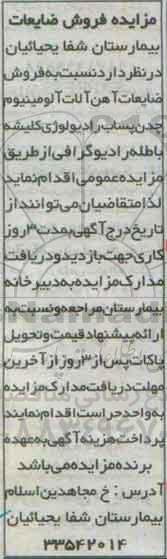 مزایده فروش ضایعات
بیمارستان شفا یحیائیان
درنظردارد نسبت به فروش
ضایعات آهن آلات آلومینیوم
چدن پساب رادیولوژی کلیشه
باطله رادیوگرافی از طریق
مزایده عمومی اقدام نماید
لذا متقاضیان می توانند از
تاریخ درج آگهی بمدت ۳ روز
کاری جهت بازدید و دریافت
مدارک مزایده به دبیرخانه
بیمارستان مراجعه و نسبت به
ارائه پیشنهاد قیمت و تحویل
پاکات پس از ۳ روز از آخرین
مهلت دریافت مدارک مزایده
به واحد حراست اقدام نمایند
پرداخت هزینه آگهی به عهده
برنده مزایده می باشد
آدرس : خ مجاهدین اسلام
بیمارستان شفا یحیائیان
۳۳۵۴۲۰۱۴